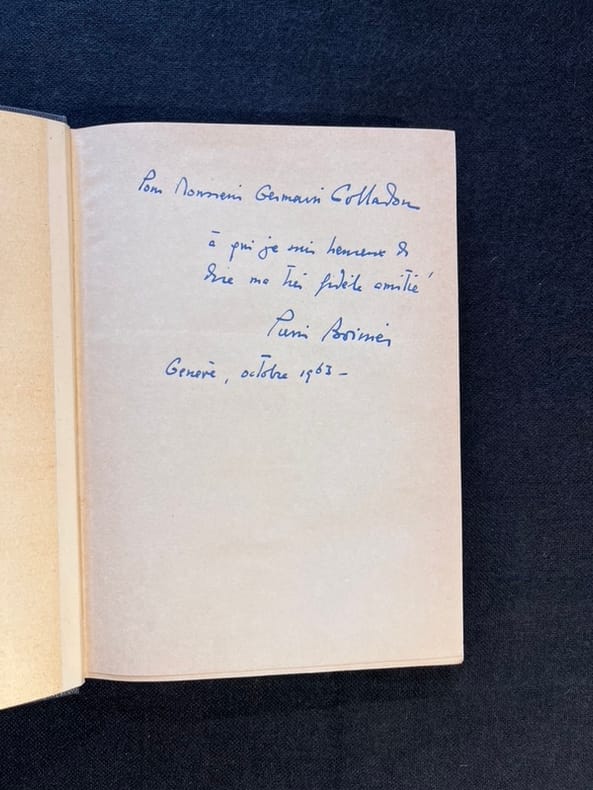 Pour Monsieur Germain Colladon
à qui je suis heureux de
dire ma très fidèle amitié
Pierre Boissier
Genève, octobre 1963 –